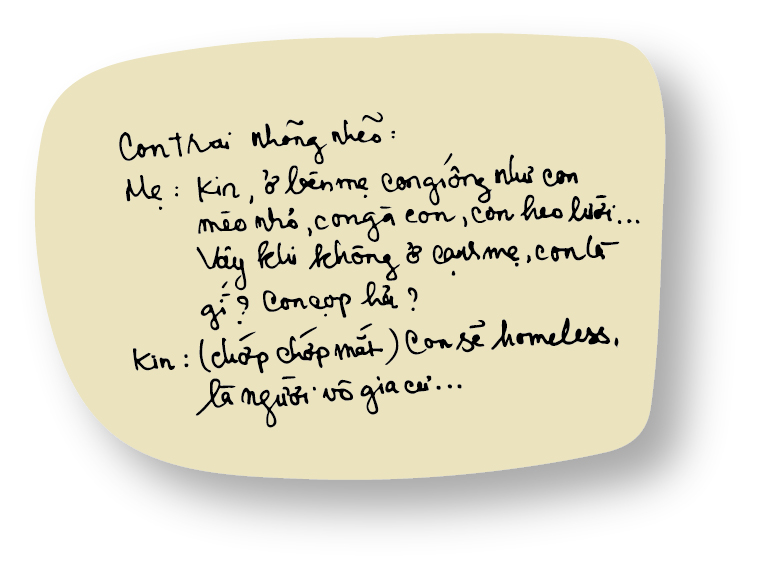 Con trai nhõng nhẽo:
Mẹ: Kin, ở bên mẹ con giống như con
mèo nhỏ, con gà con, con heo lười...
Vậy khi không ở cạnh mẹ, con là
gì? Con cọp hả?
Kin: (chớp chớp mắt) Con sẽ homeless,
là người vô gia cư...